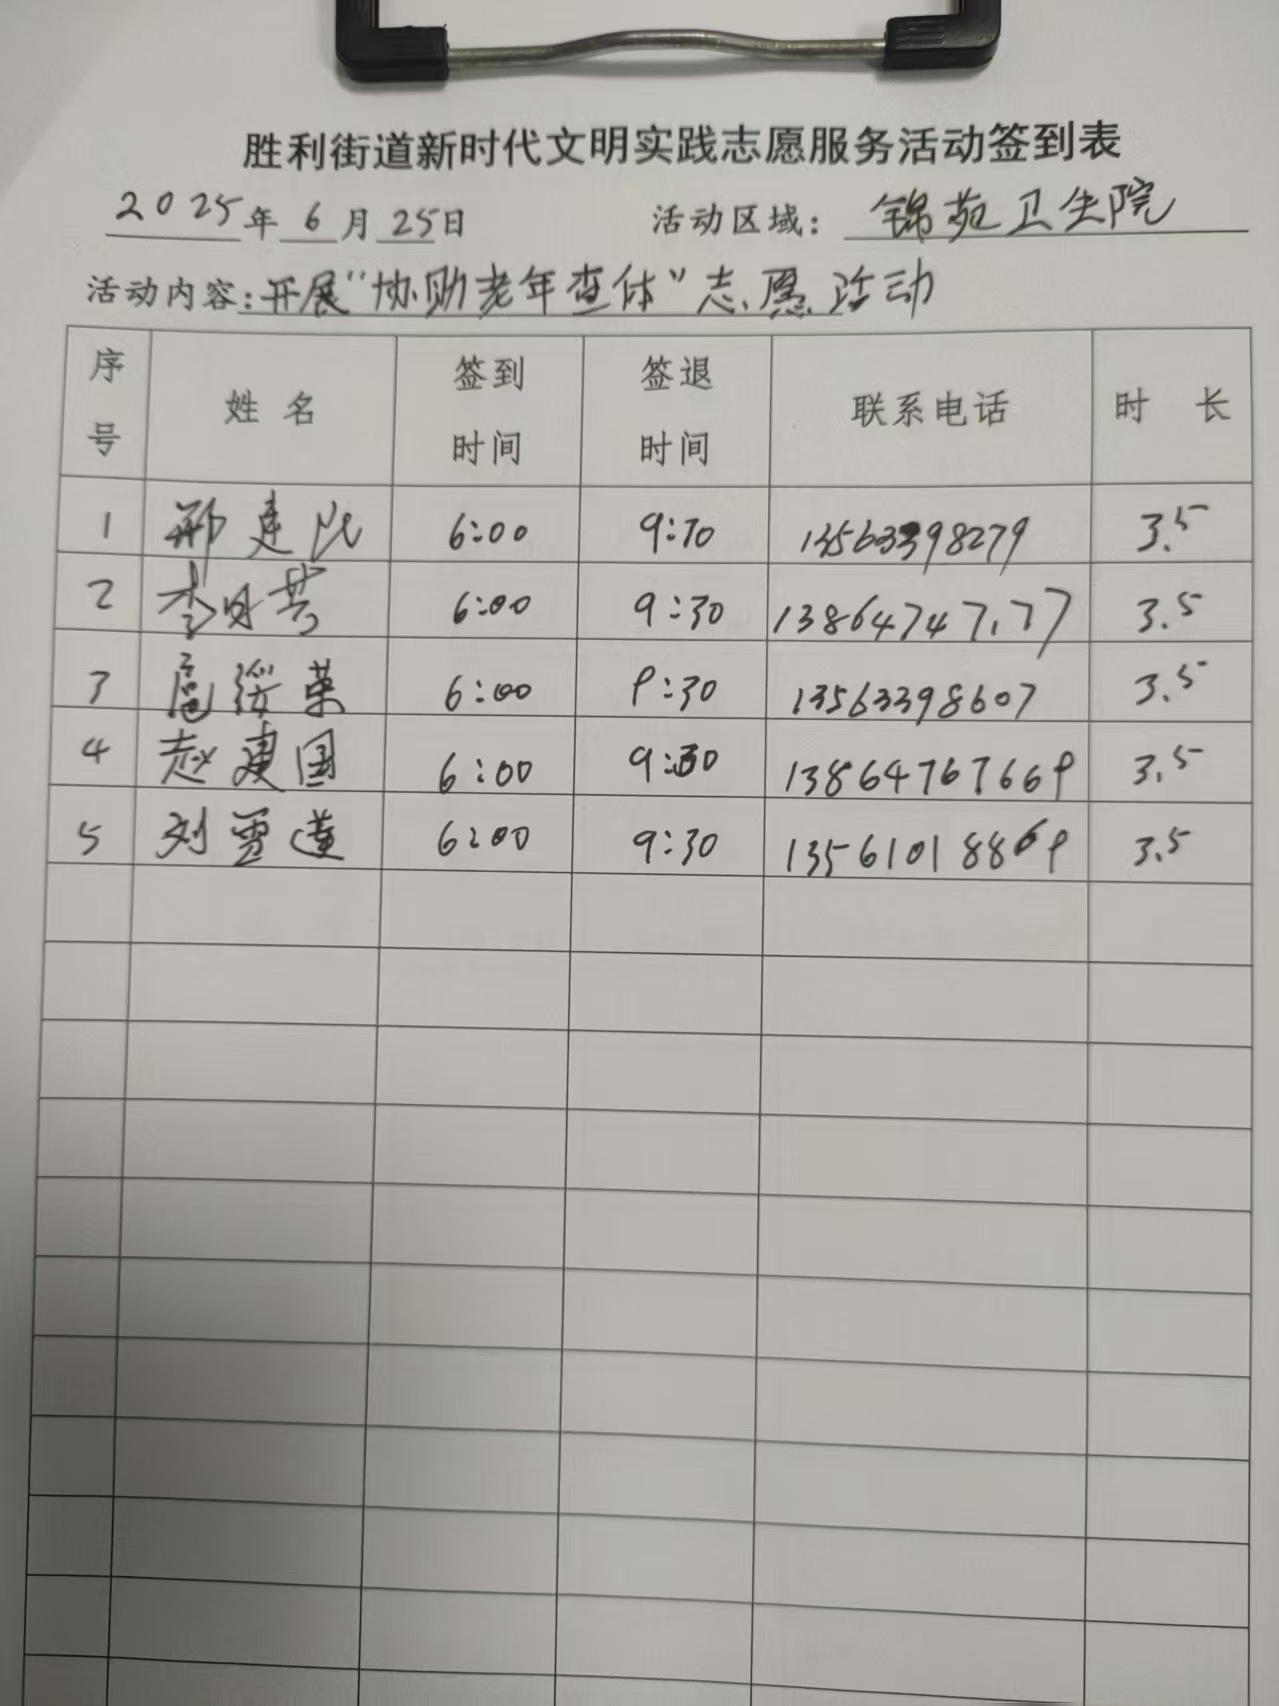 胜利街道新时代文明实践志愿服务活动签到表
2025年 6月 25日 活动区域：锦苑卫生院
活动内容：开展“协助老年查体”志愿活动
序号 姓名 签到时间 签退时间 联系电话 时长
1 邢建民 6:00 9:30 13563398279 3.5
2 李日芳 6:00 9:30 3.5
3 扈绥荣 6:00 9:30 13563398607 3.5
4 赵建国 6:00 9:30 13864767669 3.5
5 刘雪莲 6:00 9:30 13561018869 3.5